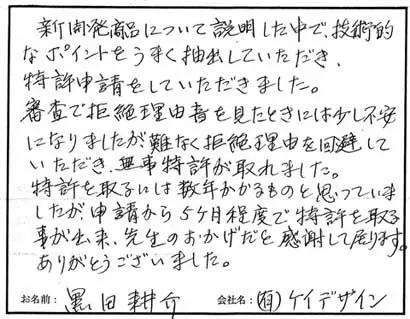 新開発商品について説明した中で、技術的
なポイントをうまく抽出していただき、
特許申請をしていただきました。
審査で拒絶理由書を見たときには少し不安
になりましたが難なく拒絶理由を回避して
いただき、無事特許が取れました。
特許を取るには数年かかるものと思っていま
したが申請から5ケ月程度で特許を取る
事が出来、先生のおかげだと感謝して居ります。
ありがとうございました。
お名前: 黒田耕介 会社名: (有)ケイデザイン